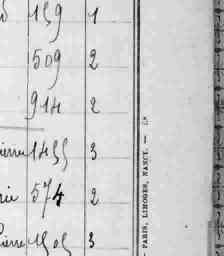 159 1
509 2
914 2
ierre 1455 3
574 2
Pierre 1505 3
PARIS, LIMOGES, NANCY. —